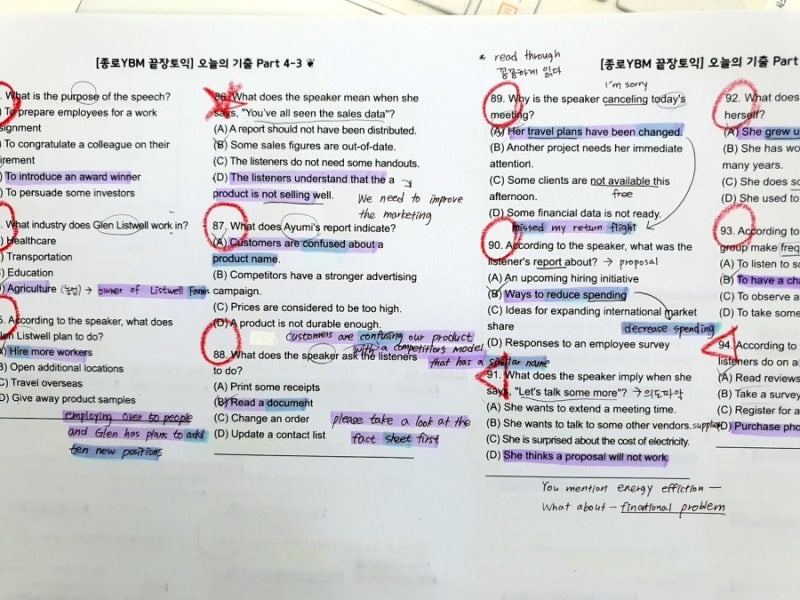 [종로YBM 끝장토익] 오늘의 기출 Part 4-3
What is the purpose of the speech?
To prepare employees for a work
signment
To congratulate a colleague on their
irement
To introduce an award winner
To persuade some investors
What industry does Glen Listwell work in?
Healthcare
Transportation
Education
Agriculture (농업) → owner of Listwell Farms
According to the speaker, what does
en Listwell plan to do?
Hire more workers
Open additional locations
Travel overseas
D) Give away product samples
employing over 50 people
and Glen has plans to add
ten new positions
86. What does the speaker mean when she
says, "You've all seen the sales data"?
(A) A report should not have been distributed.
(B) Some sales figures are out-of-date.
(C) The listeners do not need some handouts.
(D) The listeners understand that the a
product is not selling well.
We need to improve
the marketing
87. What does Ayumi's report indicate?
(A) Customers are confused about a
product name.
(B) Competitors have a stronger advertising
campaign.
(C) Prices are considered to be too high.
(D) A product is not durable enough.
customers are confusing our product
with a competitor's model
that has a similar name
88. What does the speaker ask the listeners
to do?
(A) Print some receipts
(B) Read a document
(C) Change an order
(D) Update a contact list
please take a look at the
fact sheet first
* read through
꼼꼼하게 읽다
[종로YBM 끝장토익] 오늘의 기출 Part
I'm sorry
89. Why is the speaker canceling today's
meeting?
(A) Her travel plans have been changed.
(B) Another project needs her immediate
attention.
(C) Some clients are not available this
afternoon.
free
(D) Some financial data is not ready.
missed my return flight
90. According to the speaker, what was the
listener's report about? → proposal
(A) An upcoming hiring initiative
(B) Ways to reduce spending
(C) Ideas for expanding international market
share
decrease spending
(D) Responses to an employee survey
91. What does the speaker imply when she
says, "Let's talk some more"? → 의도파악
(A) She wants to extend a meeting time.
(B) She wants to talk to some other vendors.
(C) She is surprised about the cost of electricity.
(D) She thinks a proposal will not work.
You mention energy effiction —
What about — finational problem
92. What does
herself?
(A) She grew u
(B) She has wo
many years.
(C) She does so
(D) She used to
93. According to
group make freq
(A) To listen to so
(B) To have a cha
(C) To observe a
(D) To take some
94. According to
listeners to do on a
(A) Read reviews
(B) Take a survey
(C) Register for a
(D) Purchase pho